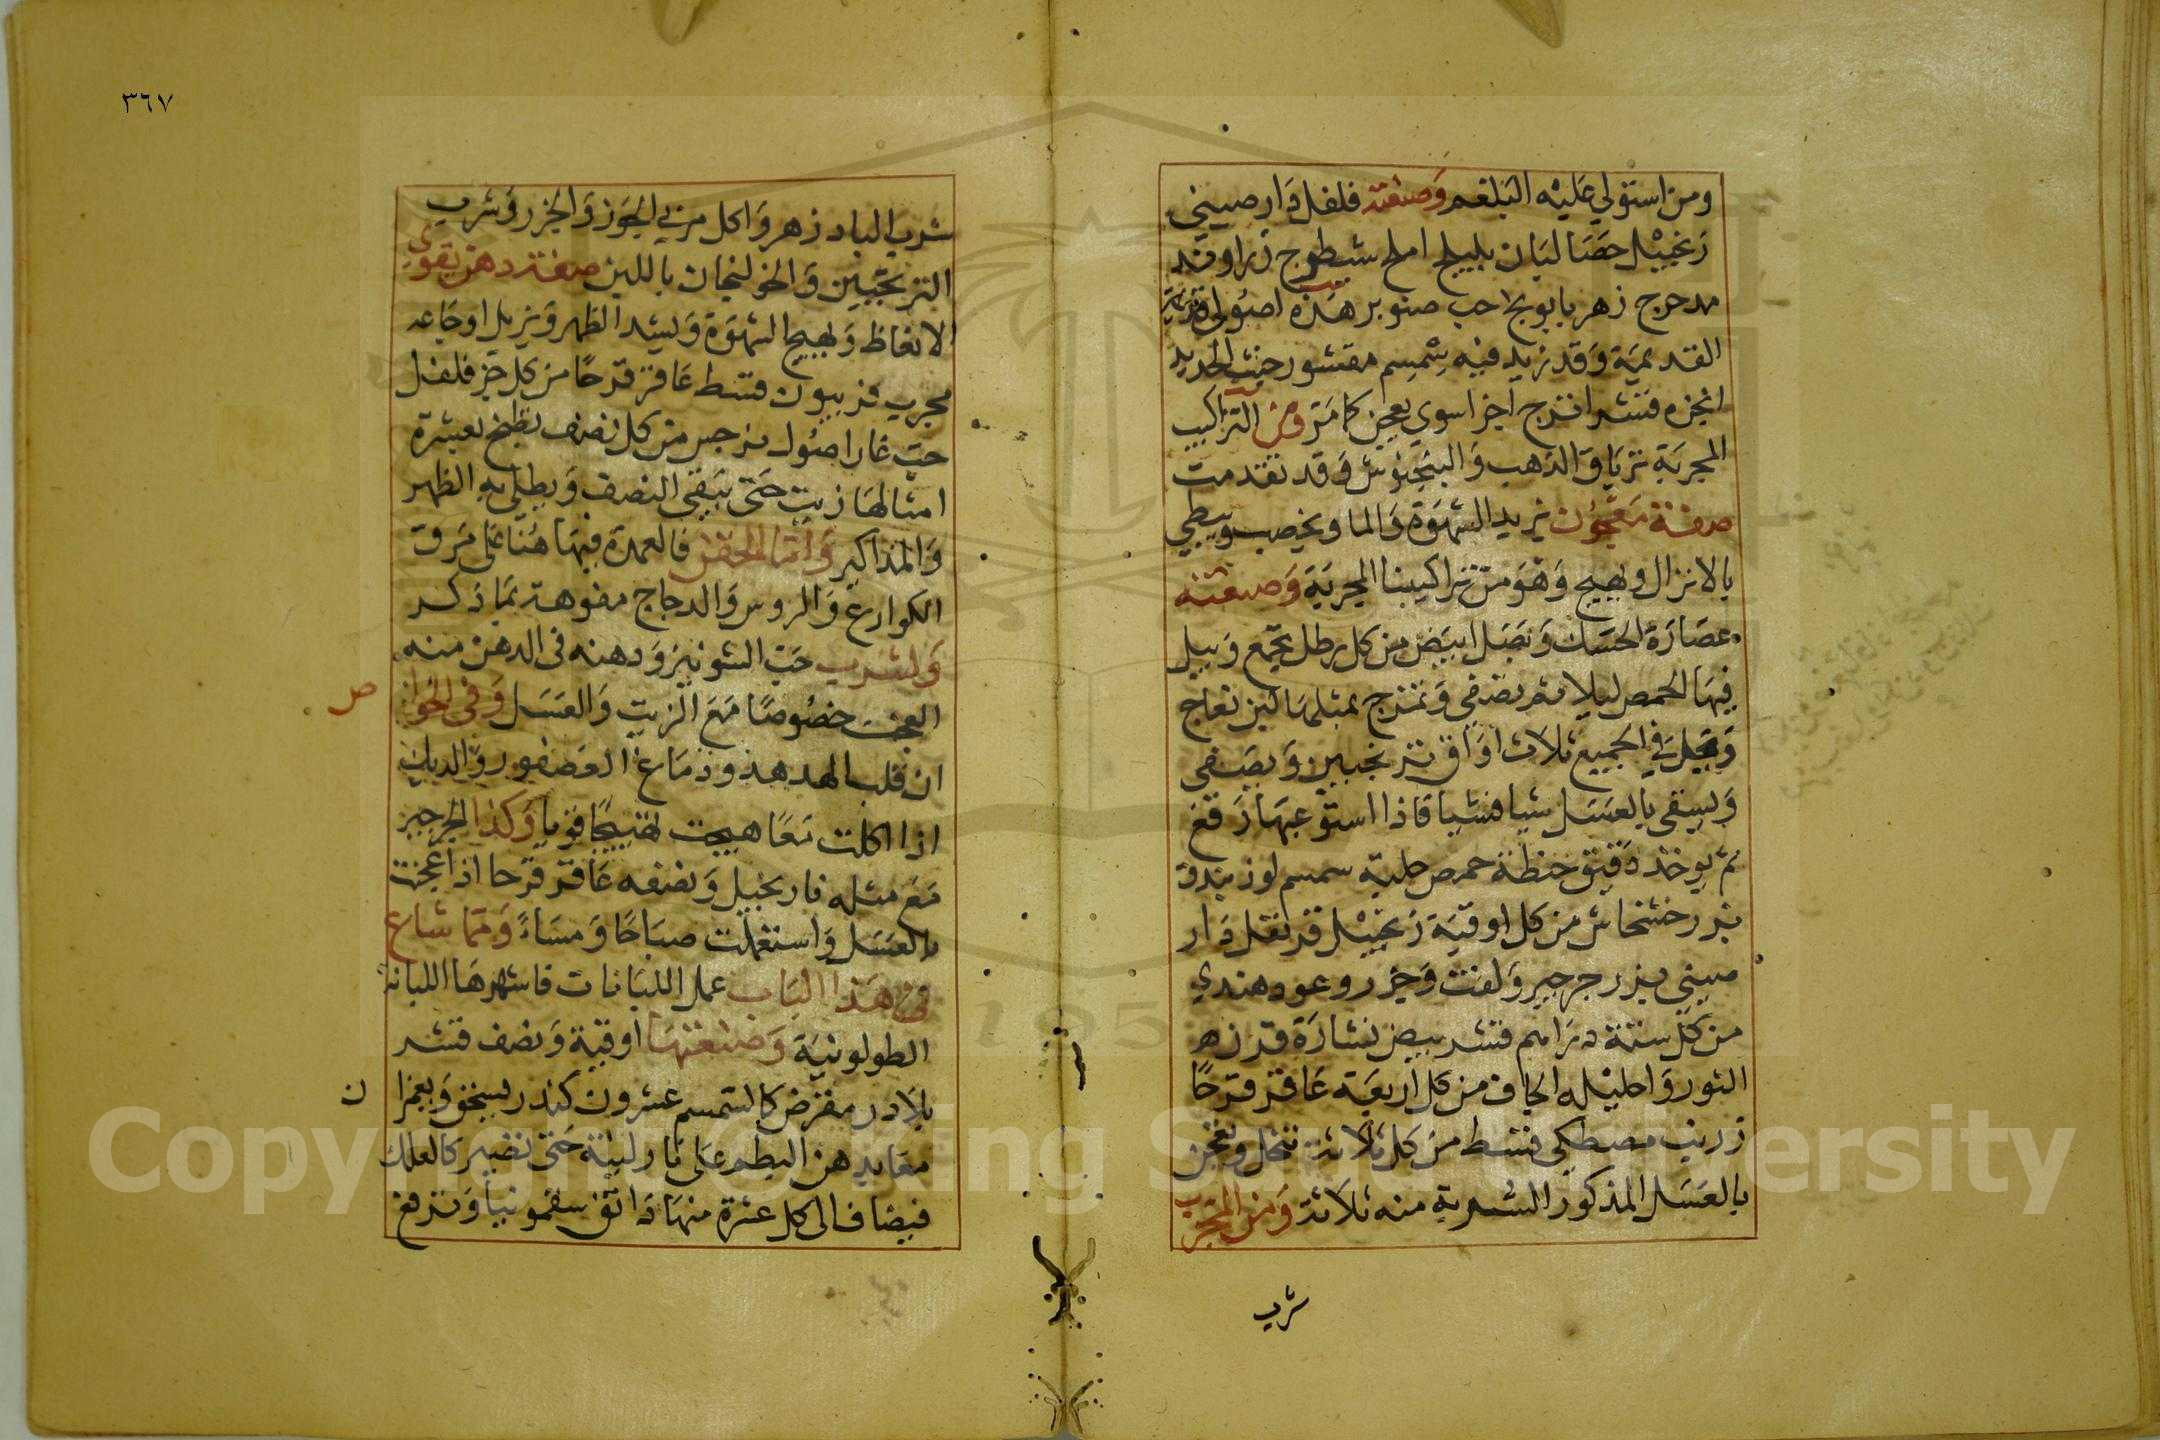 ومن استولي عليه البلغم وصنعته فلفل دار صيني
زنجبيل حصا لبان بليلج املج شيطرج زراوند
مدحرج زهر بابونج حب صنوبر هذه اصوله
القديمة وقد زيد فيه سمسم مقشور خبث الحديد
انجره قشر اترج اجزا سوي يعجن كما مر ومن التراكيب
المجربة ترياق الذهب وقد تقدمت
صفة معجون يزيد الشهوة والما ويخصب ويبطي
بالانزال ويهيج وهو من تراكيبنا المجربة وصنعته
عصارة الحسك وبصل ابيض من كل رطل يجمع ويبل
فيها الحمص ليلا ثم يصفي وتمزج بمثلها لبن نعاج
ويجعل في الجميع ثلاث اواق ترنجبين ويصفي
ويسقي بالعسل شيا فشيا فاذا استوعبها رفع
ثم يوخذ دقيق حنطة حمص حلبة سمسم لوز بندق
بزر خشخاش من كل اوقية زنجبيل قرنفل دار
صيني بزر جرجير ولفت وجزر وعود هندي
من كل ستة دراهم قشر بيض نشارة قرن
الثور واحليله الجاف من كل اربعة عاقر قرحا
زرنب مصطكي قسط من كل ثلاثة تنخل وتعجن
بالعسل المذكور الشربة منه ثلاثة ومن المجرب
شرب
٣٦٧
شرب الباد زهر واكل مربي الجوز والجزر وشرب
الترنجبين والخولنجان باللبن صفة دهن يقوي
الانعاظ ويهيج الشهوة ويشد الظهر ويزيل اوجاعه
مجرب فربيون قسط عاقر قرحا من كل جز فلفل
حب غار اصول نرجس من كل نصف يطبخ بعشرة
امثالها زيت حتى يبقي النصف ويطلي به الظهر
والمذاكير واما الحقن فالعمدة فيها هنا على مرق
الكوارع والروس والدجاج مفوهة بما ذكر
ولشرب حب الشونيز ودهنه في الدهن منه
العجب خصوصا مع الزيت والعسل وفي الخواص
ان قلب الهدهد ودماغ العصفور والديك
اذا اكلت معا هيجت تهييجا قويا وكذا الجرجير
مع مثله نارجيل ونصفه عاقر قرحا اذا عجنت
بالعسل واستعملت صباحا ومساءً ومما شاع
في هذا الباب عمل اللبانات فاشهرها اللبانة
الطولونية وصنعتها اوقية ونصف قشر
بلادر مقرض كالسمسم عشرون كندر يسحق ويمزجان
معا بدهن البطم على نار لينة حتى تصير كالعلك
فيضاف الى كل عشرة منها دانق سقمونيا وترفع
Copyright © King Saud University